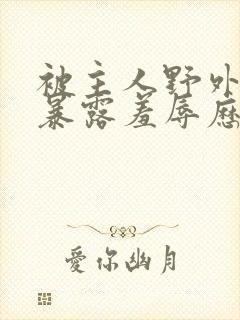 被主人野外
暴露羞辱历
爱你幽月